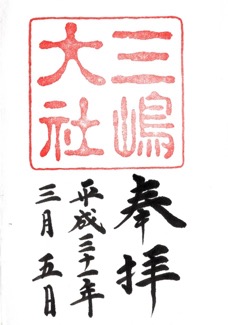 三嶋
大社
奉拝
平成三十一年
三月五日